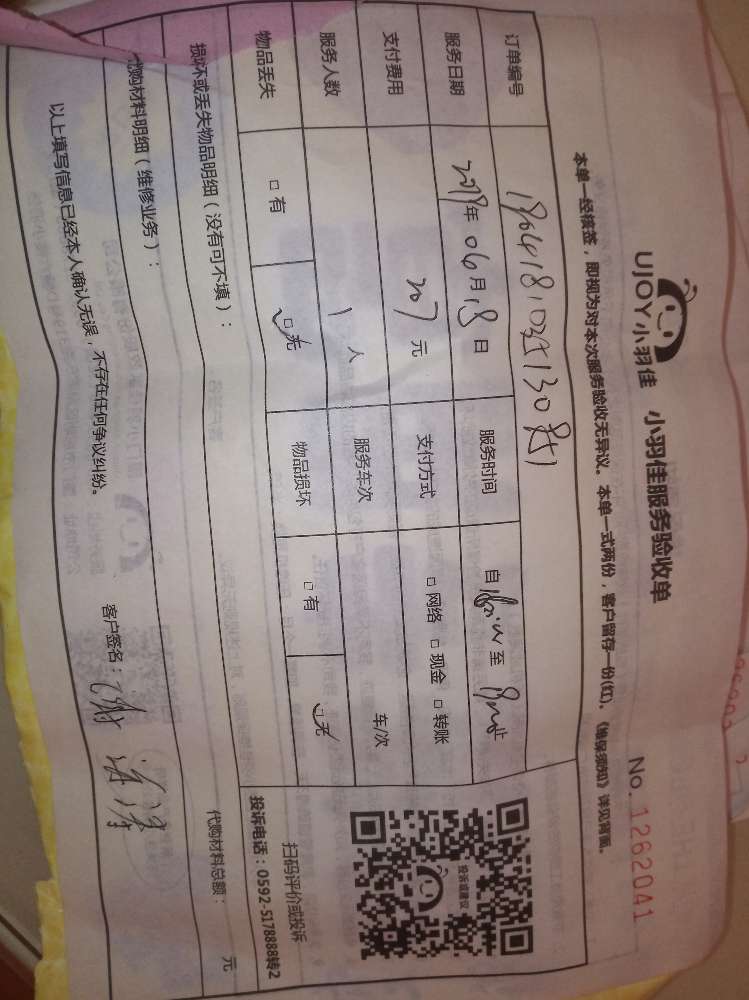 UJOY小羽佳 小羽佳服务验收单
No. 1262041
本单一经核签，即视为对本次服务验收无异议。本单一式两份，客户留存一份(红)。《维保须知》详见背面。
订单编号
服务日期 年 06 月 18 日 服务时间 自 至 止
支付费用 207 元 支付方式 □ 网络 □ 现金 □ 转账
服务人数 1 人 服务车次 车/次
物品丢失 □ 有 □ 无 物品损坏 □ 有 □ 无
投诉或建议
扫码评价或投诉
投诉电话：0592-5178888转2
损坏或丢失物品明细（没有可不填）：
代购材料明细（维修业务）： 代购材料总额： 元
以上填写信息已经本人确认无误，不存在任何争议纠纷。 客户签名：